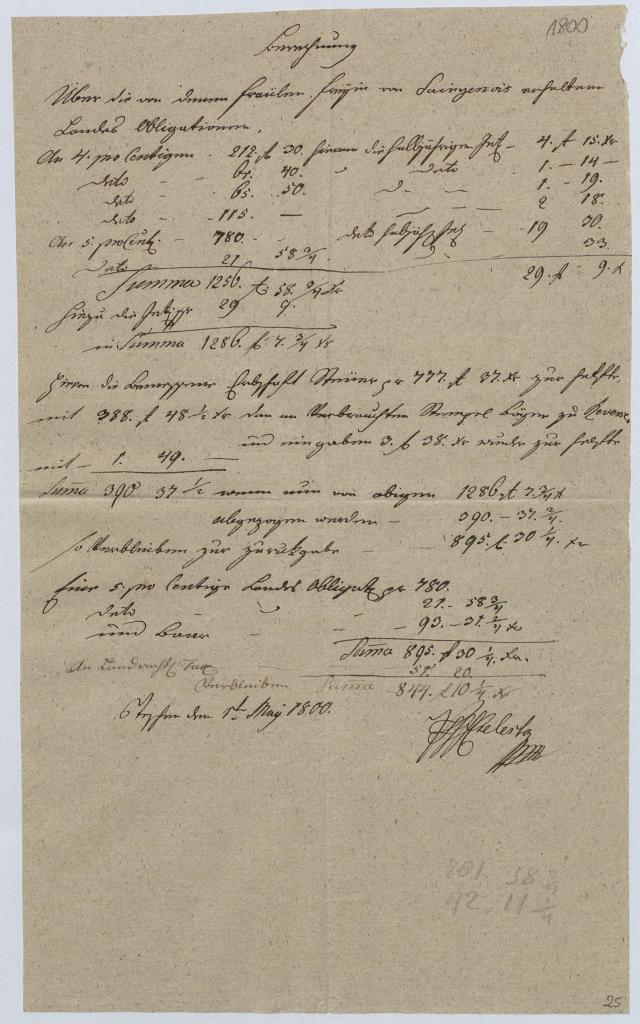 1800
Berechnung
Über die von denen Fräulen Freyin von Saingenois erhaltene
Landes Obligationen.
An 4. pro Centigen - 212. f 30. hievon die halbjährigen Int. - 4. f 15. xr
detto - - 61. 40. " detto 1. - 14 -
detto - - 65. 50. " - 1. - 19.
detto - - 115. - - - 2 18.
An 5. pro Cent. - 780. - detto halbjähr. Int. - 19 30.
detto 21 58 3/4 33.
Summa 1256. f 58. 3/4 xr 29. f - 9. x
Hiezu die Int. pr 29 9.
in Summa 1286. f 7. 3/4 xr
Hievon die Erbschaft Steuer pr 777. f 37. xr zur Helfte
mit 388. f 48 1/2 xr dan an Verbrauchten Stempel Bögen zu
und eingaben 3. f 38. xr wieder zur Helfte
mit - 1. 49. -
Suma 390. 37 1/2 wenn nun von obigen 1286. f 7. 3/4 x
abgezogen werden - 390. - 37. 2/4.
so Verbleiben zur zurukgabe - - 895. f. 30 1/4. xr
Eine 5. pro Centige Landes Obligat. pr 780.
detto - - - 21. - 58 3/4
und Baar - - - 93. - 31. 2/4 x
Suma 895. f 30 1/4. xr.
An Landrecht. Tax 51. 20.
Verbleiben Suma 844. f 10 1/4 xr
den 1ten May 1800.
801. 58 3/4
42. 11 1/4
25